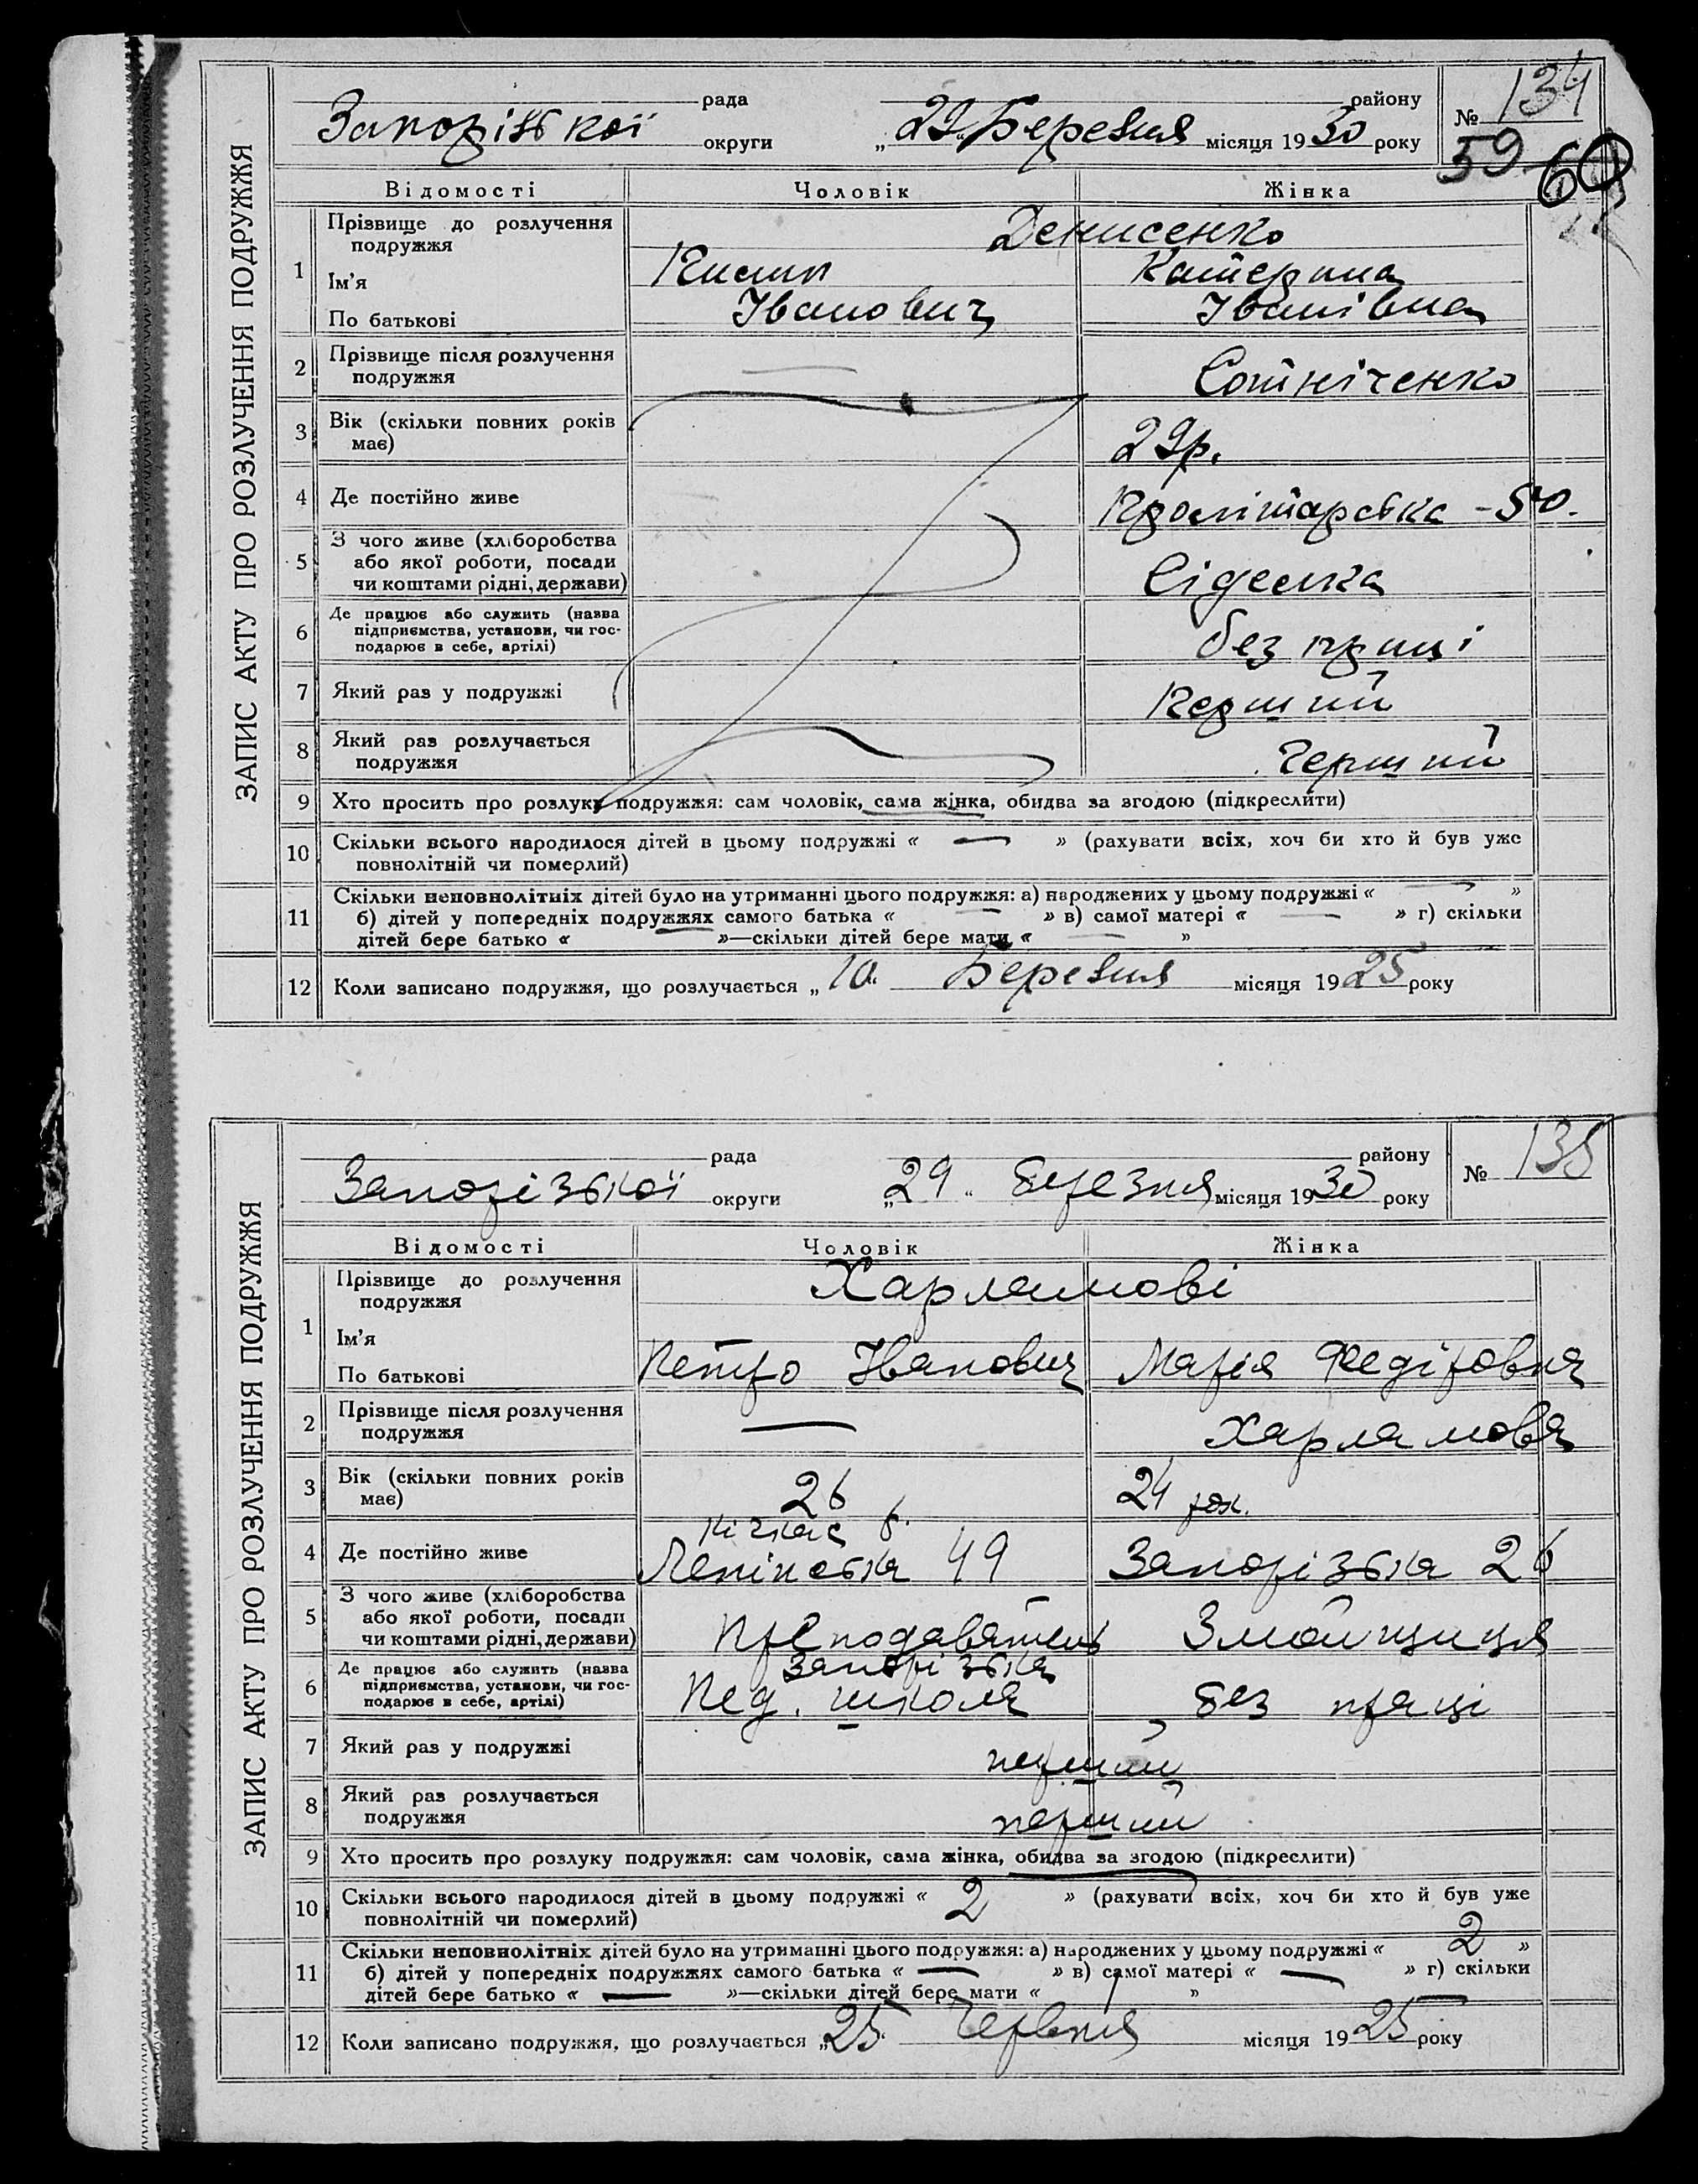 ЗАПИС АКТУ ПРО РОЗЛУЧЕННЯ ПОДРУЖЖЯ
рада району № 134
Запорізької округи „29“ Березня місяця 1930 року
59 60
Відомості Чоловік Жінка
1 Прізвище до розлучення подружжя Денисенко
Ім'я Катерина
По батькові Іванович Іванівна
2 Прізвище після розлучення подружжя — Сотніченко
3 Вік (скільки повних років має) 29р.
4 Де постійно живе
5 З чого живе (хліборобства або якої роботи, посади чи коштами рідні, держави) Сіделка
6 Де працює або служить (назва підприємства, установи, чи господарює в себе, артілі) без праці
7 Який раз у подружжі Перший
8 Який раз розлучається подружжя Перший
9 Хто просить про розлуку подружжя: сам чоловік, сама жінка, обидва за згодою (підкреслити)
10 Скільки всього народилося дітей в цьому подружжі « — » (рахувати всіх, хоч би хто й був уже
повнолітній чи померлий)
11 Скільки неповнолітніх дітей було на утриманні цього подружжя: а) народжених у цьому подружжі « — »
б) дітей у попередніх подружжях самого батька « — » в) самої матері « — » г) скільки
дітей бере батько « »—скільки дітей бере мати « — »
12 Коли записано подружжя, що розлучається „10. Березня місяця 1925 року
ЗАПИС АКТУ ПРО РОЗЛУЧЕННЯ ПОДРУЖЖЯ
рада району № 135
Запорізької округи „29“ березня місяця 1930 року
Відомості Чоловік Жінка
1 Прізвище до розлучення подружжя Харламові
Ім'я
По батькові Петро Іванович Марія Федіровна
2 Прізвище після розлучення подружжя — Харламова
3 Вік (скільки повних років має) 26 24 рок.
Кічкас
4 Де постійно живе Ленінська 49 Запорізька 26
5 З чого живе (хліборобства або якої роботи, посади чи коштами рідні, держави) Преподаватель
6 Де працює або служить (назва підприємства, установи, чи господарює в себе, артілі) Запорізька Пед. школа без праці
7 Який раз у подружжі перший
8 Який раз розлучається подружжя перший
9 Хто просить про розлуку подружжя: сам чоловік, сама жінка, обидва за згодою (підкреслити)
10 Скільки всього народилося дітей в цьому подружжі « 2 » (рахувати всіх, хоч би хто й був уже
повнолітній чи померлий)
11 Скільки неповнолітніх дітей було на утриманні цього подружжя: а) народжених у цьому подружжі « 2 »
б) дітей у попередніх подружжях самого батька « — » в) самої матері « — » г) скільки
дітей бере батько « — »—скільки дітей бере мати « »
12 Коли записано подружжя, що розлучається „25. Червня місяця 1925 року